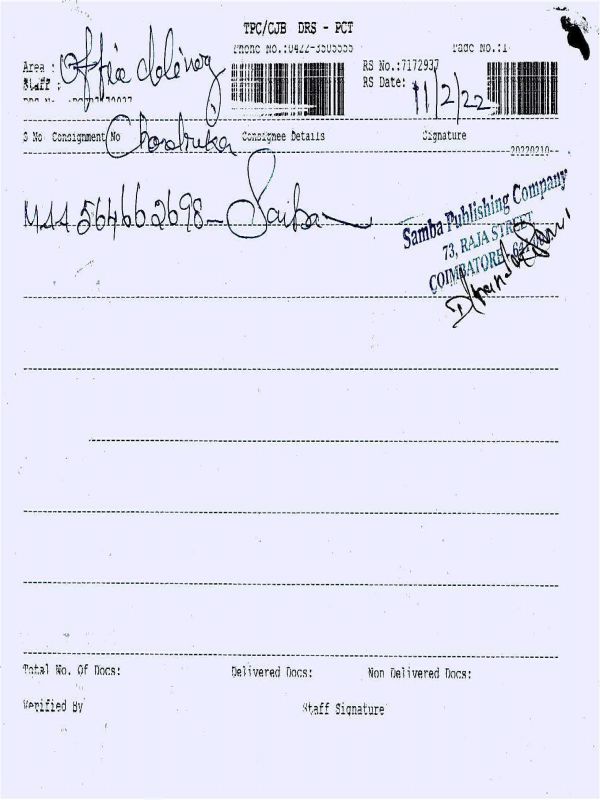 TPC/CJB DRS - PCT
Phone No.:0422-3505555 Page No.:1
Area : Office delivery RS No.:7172937
Staff : RS Date: 11/2/22
S No Consignment No Consignee Details Signature
Chandrika
20220210
MAA564662698 - Samba
Samba Publishing Company
73, RAJA STREET
COIMBATORE
Total No. Of Docs: Delivered Docs: Non Delivered Docs:
Verified By Staff Signature